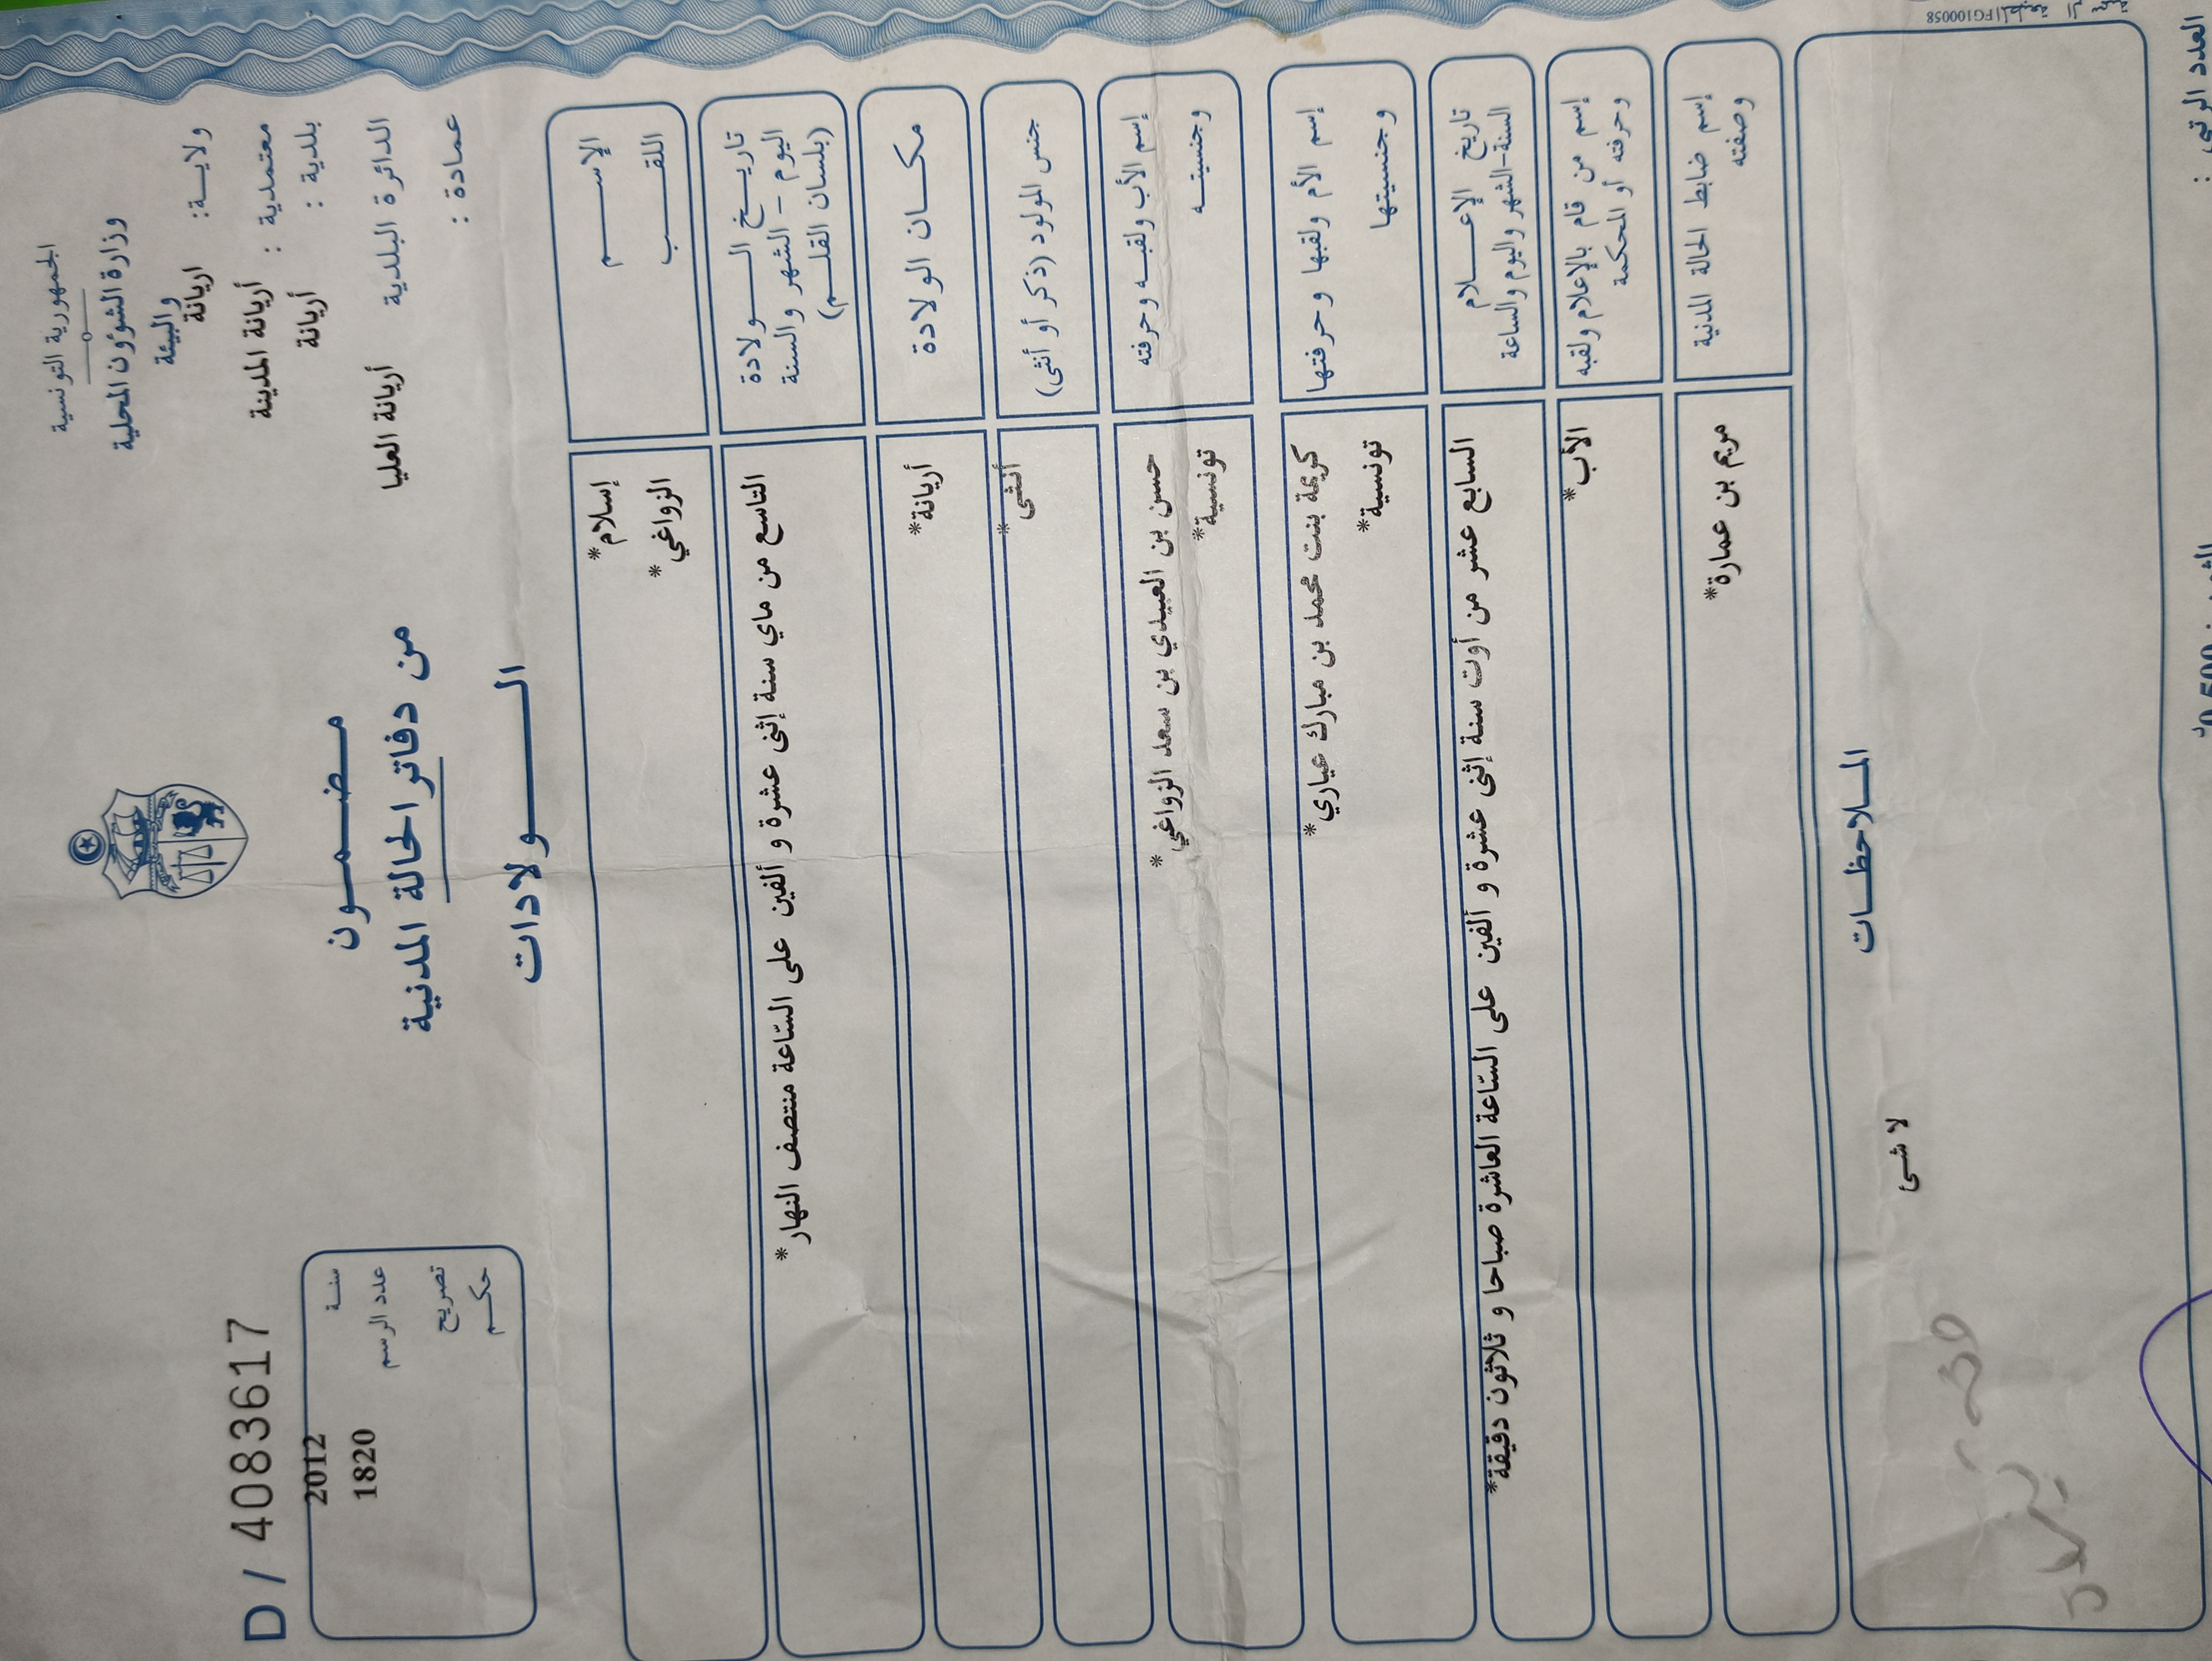 الجمهورية التونسية
وزارة الشؤون المحلية
والبيئة
ولايـــة: اريانة
معتمدية : أريانة المدينة
بلدية : أريانة
الدائرة البلدية أريانة العليا
عمادة :
D / 4083617
سنـــة 2012
عدد الرسم 1820
تصريح
حكــم
مـضـمــون
من دفاتر الحالة المدنية
الــــولادات
الإســـــم إسلام*
اللقـــــب الزواغي*
تاريــخ الـــولادة
اليوم – الشهر والسنة
(بلسان القلــم)
التاسع من ماي سنة إثنى عشرة و ألفين على السّاعة منتصف النهار*
مكــان الولادة أريانة*
جنس المولود (ذكر أو أنثى) أنثى*
إسم الأب ولقبــه وحرفته حسن بن العبيدي بن سعد الزواغي*
وجنسيتــه تونسية*
إسم الأم ولقبها وحرفتها كريمة بنت محمد بن مبارك عياري*
وجنسيتها تونسية*
تاريخ الإعــــلام
السنة-الشهر واليوم والساعة
السابع عشر من أوت سنة إثنى عشرة و ألفين على السّاعة العاشرة صباحا و ثلاثون دقيقة*
إسم من قام بالإعلام ولقبه الأب*
وحرفته أو المحكمة
إسم ضابط الحالة المدنية مريم بن عمارة*
وصفته
المــلاحظــات
لا شئ
العدد الرتبي :